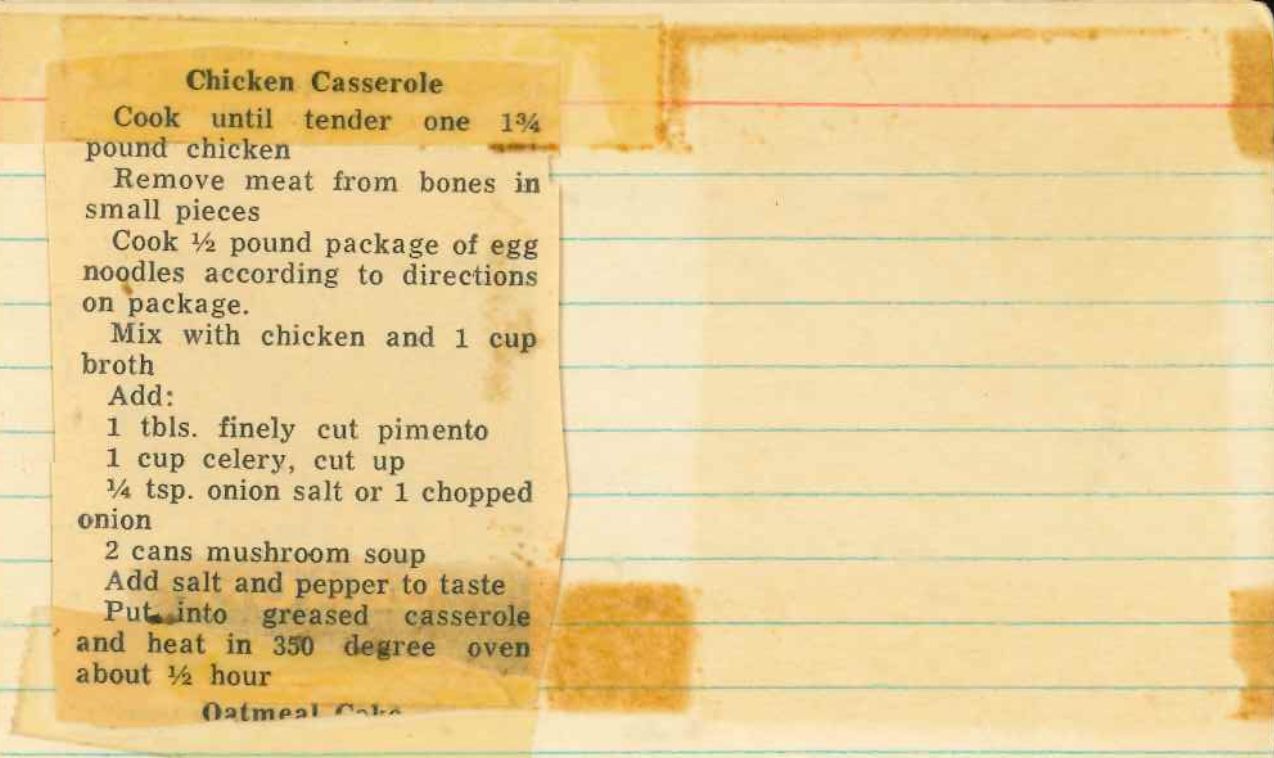 Chicken Casserole
Cook until tender one 1¾
pound chicken
Remove meat from bones in
small pieces
Cook ½ pound package of egg
noodles according to directions
on package.
Mix with chicken and 1 cup
broth
Add:
1 tbls. finely cut pimento
1 cup celery, cut up
¼ tsp. onion salt or 1 chopped
onion
2 cans mushroom soup
Add salt and pepper to taste
Put into greased casserole
and heat in 350 degree oven
about ½ hour
Oatmeal Cake